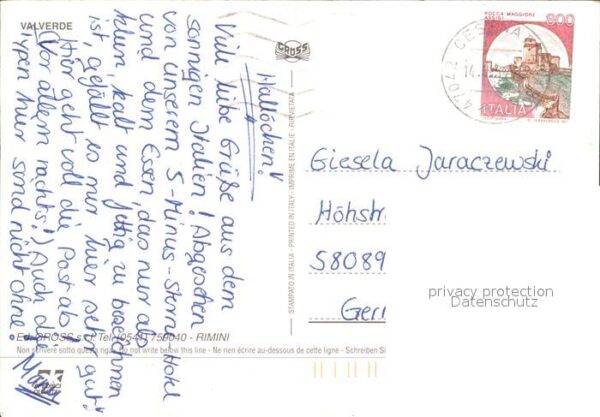 VALVERDE
Hallöchen!
Viele liebe Grüße aus dem
sonnigen Italien! Abgesehen
von unserem 5-Minus-Sterne-Hotel
und dem Essen, das nur als
klein kalt und fettig zu bezeichnen
ist, gefällt es mir hier sehr gut!
Hier geht voll die Post ab
(Vor allem nachts!) Auch die
Typen hier sind nicht ohne!
GROSS
STAMPATO IN ITALIA - PRINTED IN ITALY - IMPRIME EN ITALIE - RIPR. VIETATA
ROCCA MAGGIORE
ASSISI
800
ITALIA
47042 CESENA
14.
Giesela Jaraczewski
Höhstr
58089
Ger
privacy protection
Datenschutz
Ed. GROSS s.r.l. Tel. (0541) 759040 - RIMINI
Non scrivere sotto questa riga - Do not write below this line - Ne rien écrire au-dessous de cette ligne - Schreiben Si